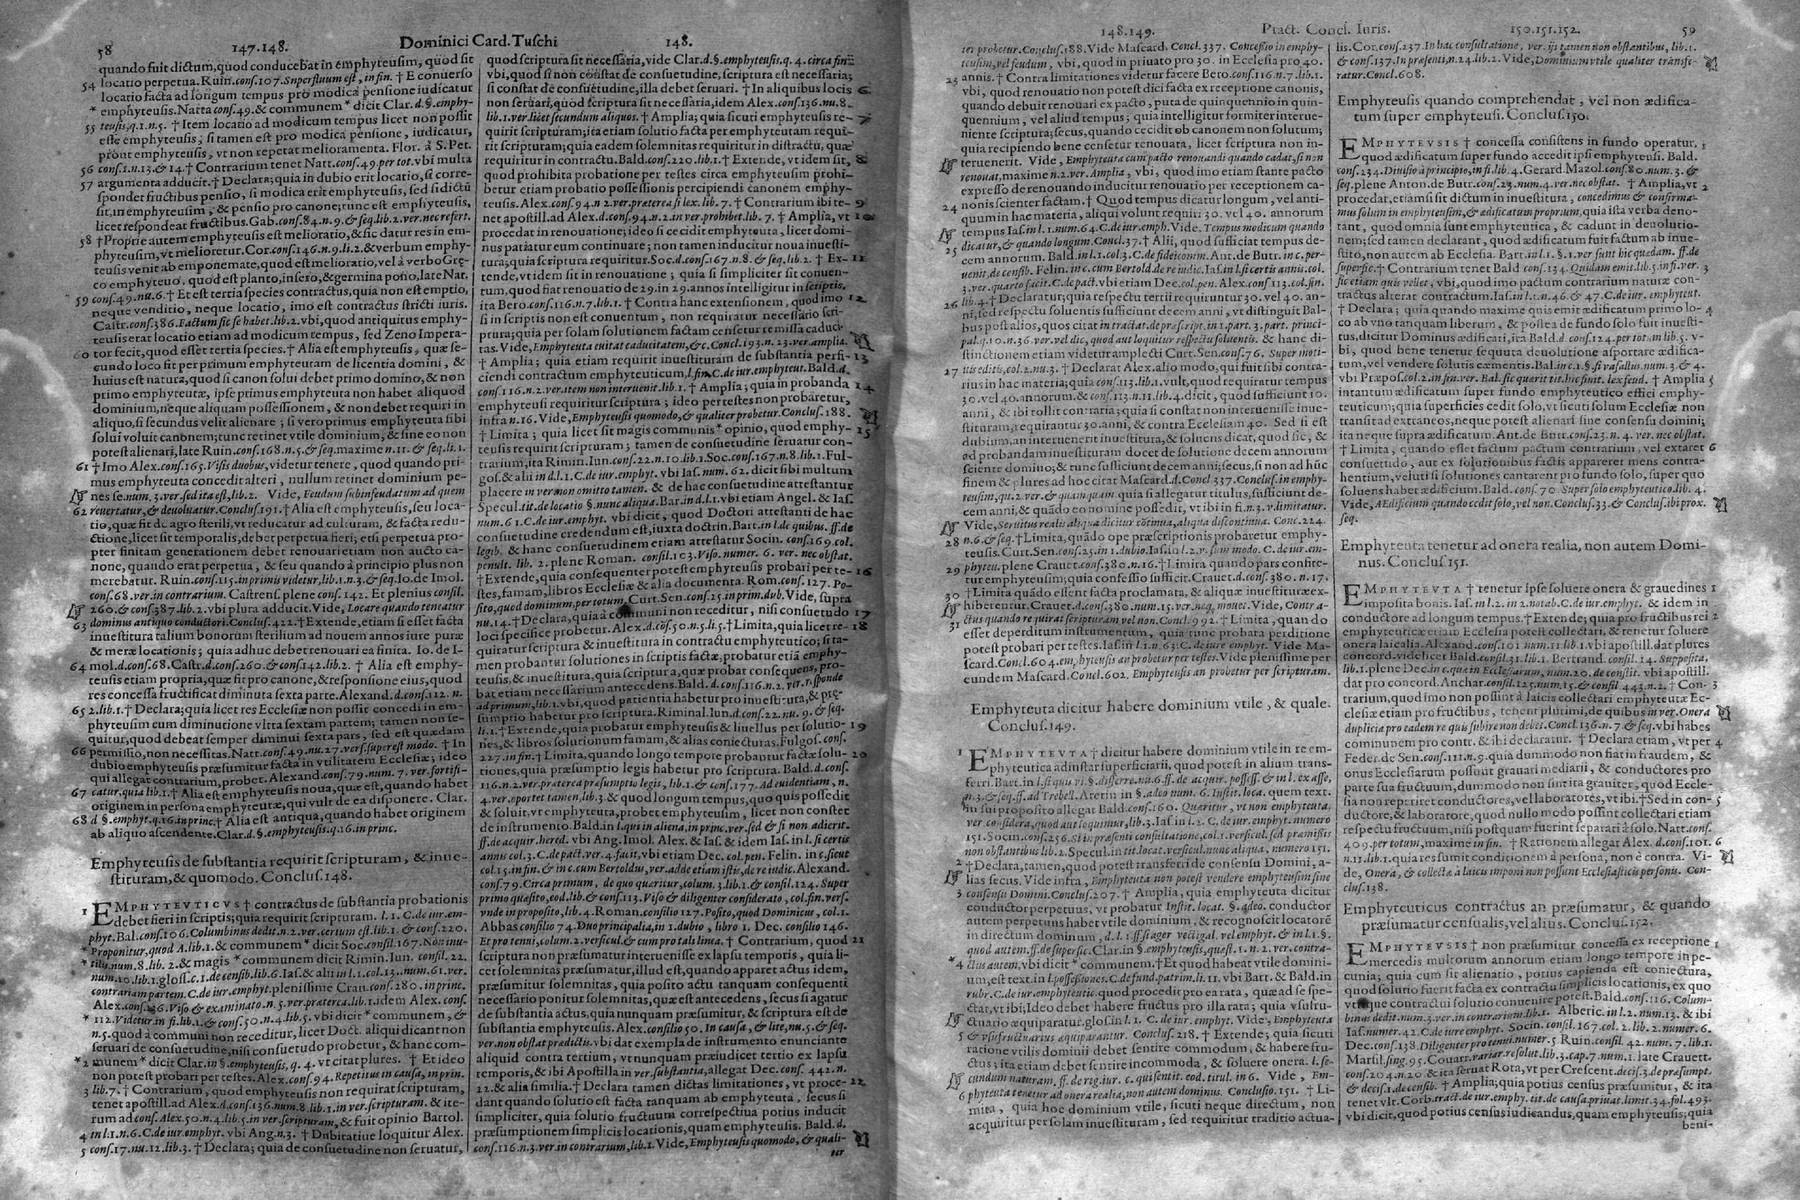 58 147.148. Dominici Card. Tuschi 148.
quando fuit dictum, quod conducebat in emphyteusim, quod sit
54 locatio perpetua. Ruin. cons. 107. Superfluum est, in fin. † E conuerso
locatio facta ad longum tempus pro modica pensione iudicatur
* emphyteusis. Natta cons. 49. & communem * dicit Clar. d. §. emphy-
55 teusis, q. 1. n. 5. † Item locatio ad modicum tempus licet non possit
esse emphyteusis; si tamen est pro modica pensione, iudicatur,
pront emphyteusis, vt non repetat melioramenta. Flor. à S. Pet.
56 cons. 1. n. 13. & 14. † Contrarium tenet Natt. cons. 49. per tot. vbi multa
57 argumenta adducit. † Declara; quia in dubio erit locatio, si corre-
spondet fructibus pensio, si modica erit emphyteusis, sed si dictũ
sit, in emphyteusim, & pensio pro canone; tunc est emphyteusis,
licet respondeat fructibus. Gab. cons. 84. n. 9. & seq. lib. 2. ver. nec refert.
58 † Proprie autem emphyteusis est melioratio, & sic datur res in em-
phyteusim, vt melioretur. Cor. cons. 146. n. 9. li. 2. & verbum emphy-
teusis venit ab emponemate, quod est melioratio, vel à verbo Grę-
co emphyteuo, quod est planto, insero, & germina pono, late Nat.
59 cons. 49. nu. 6. † Et est tertia species contractus, quia non est emptio,
neque venditio, neque locatio, imo est contractus stricti iuris.
Castr. cons. 386. Factum sic se habet. lib. 2. vbi, quod antiquitus emphy-
teusis erat locatio etiam ad modicum tempus, sed Zeno Impera-
60 tor fecit, quod esset tertia species. † Alia est emphyteusis, quæ se-
cundo loco fit per primum emphyteutam de licentia domini, &
huius est natura, quod si canon solui debet primo domino, & non
primo emphyteutæ, ipse primus emphyteuta non habet aliquod
dominium, neque aliquam possessionem, & non debet requiri in
aliquo, si secundus velit alienare; si vero primus emphyteuta sibi
solui voluit canonem; tunc retinet vtile dominium, & sine eo non
potest alienari, late Ruin. cons. 168. n. 5. & seq. maxime n. 11. & seq. li. 1.
61 † Imo Alex. cons. 165. Visis duobus, videtur tenere, quod quando pri-
mus emphyteuta concedit alteri, nullum retinet dominium pe-
nes se. num. 3. ver. sed ita est, lib. 2. Vide, Feudum subinfeudatum ad quem
62 reuertatur, & deuoluatur. Conclus. 191. † Alia est emphyteusis, seu loca-
tio, quæ fit de agro sterili, vt reducatur ad culturam, & facta redu-
ctione, licet sit temporalis, debet perpetua fieri; etsi perpetua pro-
pter finitam generationem debet renouari etiam non aucto ca-
none, quando erat perpetua, & seu quando à principio plus non
merebatur. Ruin. cons. 115. in primis videtur, lib. 1. n. 3. & seq. Io. de Imol.
cons. 68. ver. in contrarium. Castrens. plene cons. 142. Et plenius consil.
260. & cons. 387. lib. 2. vbi plura adducit. Vide, Locare quando teneatur
63 dominus antiquo conductori. Conclus. 422. † Extende, etiam si esset facta
inuestitura talium bonorum sterilium ad nouem annos iure puræ
& meræ locationis; quia adhuc debet renouari ea finita. Io. de I-
64 mol. d. cons. 68. Castr. d. cons. 260. & cons. 142. lib. 2. † Alia est emphy-
teusis etiam propria, quæ fit pro canone, & responsione eius, quod
res concessa fructificat diminuta sexta parte. Alexand. d. cons. 112. n.
65 2. lib. 1. † Declara; quia licet res Ecclesiæ non possit concedi in em-
phyteusim cum diminutione vltra sextam partem; tamen non se-
quitur, quod debeat semper diminui sexta pars, sed est quædam
66 permissio, non necessitas. Natt. cons. 49. nu. 27. vers. superest modo. † In
dubio emphyteusis præsumitur facta in vtilitatem Ecclesiæ; ideo
qui allegat contrarium, probet. Alexand. cons. 79. num. 7. ver. fortifi-
67 catur, quia lib. 1. † Alia est emphyteusis noua, quæ est, quando habet
originem in persona emphyteutæ, qui vult de ea disponere. Clar.
68 d. §. emphyt. q. 16. in princ. † Alia est antiqua, quando habet originem
ab aliquo ascendente. Clar. d. §. emphyteusis. q. 16. in princ.
Emphyteusis de substantia requirit scripturam, & inue-
stituram, & quomodo. Conclus. 148.
1 EMPHYTEVTICVS † contractus de substantia probationis
debet fieri in scriptis; quia requirit scripturam. l. 1. C. de iur. em-
phyt. Bal. cons. 106. Columbinus dedit. n. 2. ver. certum est. lib. 1. & cons. 220.
* Proponitur, quod A. lib. 1. & communem * dicit Soc. cons. 167. Non inu-
* tilis. num. 8. lib. 2. & magis * communem dicit Rimin. Iun. consil. 22.
num. 10. lib. 1. gloss. c. 1. de censib. lib. 6. Ias. & alii in l. 1. col. 13. num. 61. ver.
contrariam partem. C. de iur. emphyt. plenissime Crau. cons. 280. in princ.
Alex. cons. 136. Viso & examinato. n. 5. ver. præterea. lib. 1. idem Alex. cons.
* 112. Videtur. in fi. lib. 1. & cons. 50. n. 4. lib. 5. vbi dicit * communem, &
n. 5. quod à communi non receditur, licet Doct. aliqui dicant non
seruari de consuetudine, nisi consuetudo probetur, & hanc com-
*2 munem * dicit Clar. in §. emphyteusis, q. 4. vt citat plures. † Et ideo
non potest probari per testes. Alex. cons. 94. Repetitus in causa, in prin.
3 lib. 7. † Contrarium, quod emphyteusis non requirat scripturam,
tenet apostill. ad Alex. d. cons. 136. num. 8. lib. 1. in ver. scripturam. & ite-
rum ad cons. Alex. 50. n. 4. lib. 5. in ver. scripturam, & fuit opinio Bartol.
4 in l. 1. n. 6. C. de iur. emphyt. vbi Ang. n. 3. † Dubitatiue loquitur Alex.
5 cons. 17. nu. 12. lib. 3. † Declara; quia de consuetudine non seruatur,
quod scriptura sit necessaria, vide Clar. d. §. emphyteusis. q. 4. circa fin.
vbi, quod si non constat de consuetudine, scriptura est necessaria;
si constat de consuetudine, illa debet seruari. † In aliquibus locis 6
non seruar, quod scriptura sit necessaria, idem Alex. cons. 136. nu. 8.
lib. 1. ver. licet secundum aliquos. † Amplia; quia sicuti emphyteusis re- 7
quirit scripturam; ita etiam solutio facta per emphyteutam requi-
rit scripturam; quia eadem solemnitas requiritur in distractu, quæ
requiritur in contractu. Bald. cons. 220. lib. 1. † Extende, vt idem sit, 8
quod prohibita probatione per testes circa emphyteusim prohi-
betur etiam probatio possessionis percipiendi canonem emphy-
teusis. Alex. cons. 94. n. 2. ver. præterea si lex. lib. 7. † Contrarium ibi te- 9
net apostill. ad Alex. d. cons. 94. n. 2. in ver. prohibet. lib. 7. † Amplia, vt 10
procedat in renouatione; ideo si cecidit emphyteuta, licet domi-
nus patiatur eum continuare; non tamen inducitur noua inuesti-
tura; quia scriptura requiritur. Soc. d. cons. 167. n. 8. & seq. lib. 2. † Ex- 11
tende, vt idem sit in renouatione; quia si simpliciter sit conuen-
tum, quod fiat renouatio de 29. in 29. annos intelligitur in scriptis,
ita Bero. cons. 116. n. 7. lib. 1. † Contra hanc extensionem, quod imo 12
si in scriptis non est conuentum, non requiratur necessario scri-
ptura; quia per solam solutionem factam censetur remissa caduci-
tas. Vide, Emphyteuta euitat caducitatem, &c. Concl. 193. n. 23. ver. amplia.
† Amplia; quia etiam requirit inuestituram de substantia perfi- 13
ciendi contractum emphyteuticum, l. fin. C. de iur. emphyteut. Bald. d.
cons. 116. n. 2. ver. item non interuenit. lib. 1. † Amplia; quia in probanda 14
emphyteusi requiritur scriptura; ideo per testes non probaretur,
infra n. 16. Vide, Emphyteusis quomodo, & qualiter probetur. Conclus. 188.
† Limita; quia licet sit magis communis * opinio, quod emphy- 15
teusis requirit scripturam; tamen de consuetudine seruatur con-
trarium, ita Rimin. Iun. cons. 22. n. 10. lib. 1. Soc. cons. 167. n. 8. lib. 1. Ful-
gos. & alii in d. l. 1. C. de iur. emphyt. vbi Ias. num. 62. dicit sibi multum
placere in ver. non omitto tamen. & de hac consuetudine attestantur
Specul. tit. de locatio §. nunc aliqua. Bar. in d. l. 1. vbi etiam Angel. & Ias.
num. 61. C. de iur. emphyt. vbi dicit, quod Doctori attestanti de hac
consuetudine credendum est, iuxta doctrin. Bart. in l. de quibus. ff. de
legib. & hanc consuetudinem etiam attestatur Socin. cons. 169. col.
penult. lib. 2. plene Roman. consil. 103. Viso. numer. 6. ver. nec obstat.
† Extende, quia consequenter potest emphyteusis probari per te- 16
stes, famam, libros Ecclesiæ & alia documenta. Rom. cons. 127. Po-
sito, quod dominum, per totum. Curt. Sen. cons. 25. in prim. dub. Vide, supra
nu. 14. † Declara, quia à communi non receditur, nisi consuetudo 17
loci specifice probetur. Alex. d. cõs. 50. n. 5. li. 5. † Limita, quia licet re- 18
quiratur scriptura & inuestitura in contractu emphyteutico; si ta-
men probantur solutiones in scriptis factæ, probatur etiã emphy-
teusis, & inuestitura, quia scriptura, quæ probat consequens, pro-
bat etiam necessarium antecedens. Bald. d. cons. 116. n. 2. ver. responde
ad primum, lib. 1. vbi, quod patientia habetur pro inuestitura, & prę-
sumptio habetur pro scriptura. Riminal. Iun. d. cons. 22. nu. 9. & seq.
li. 1. † Extende, quia probatur emphyteusis & liuellus per solutio- 19
nes, & libros solutionum famam, & alias coniecturas. Fulgos. cons.
227. in fin. † Limita, quando longo tempore probantur factæ solu- 20
tiones, quia præsumptio legis habetur pro scriptura. Bald. d. cons.
116. n. 2. ver. præterea præsumptio legis, lib. 1. & cons. 177. Ad euidentiam, n.
4. ver. oportet tamen, lib. 3. & quod longum tempus, quo quis possedit
& soluit, vt emphyteuta, probet emphyteusim, licet non constet
de instrumento. Bald. in l. qui in aliena, in princ. ver. sed & si non adierit.
ff. de acquir. hered. vbi Ang. Imol. Alex. & Ias. & idem Ias. in l. si certis
annis col. 3. C. de pact. ver. 4. facit, vbi etiam Dec. col. pen. Felin. in c. sicut
col. 15. in fin. & in c. cum Bertoldus, ver. adde etiam istis, de re iudic. Alexand.
cons. 79. Circa primum, de quo quæritur, colum. 3. lib. 1. & consil. 124. Super
primo quæsito, cod. lib. & cons. 113. Viso & diligenter considerato, col. fin. vers.
vnde in proposito, lib. 4. Roman. consilio 127. Posito, quod Dominicus, col. 1.
Abb. consilio 74. Duo principalia, in 1. dubio, libro 1. Dec. consilio 146.
Et pro tenui, colum. 2. versicul. & cum pro tali linea. † Contrarium, quod 21
scriptura non præsumatur interuenisse ex lapsu temporis, quia li-
cet solemnitas præsumatur, illud est, quando apparet actus idem,
in quo interuenit solemnitas, quia posito actu tanquam consequenti
necessario ponitur solemnitas, quæ est antecedens, secus si agatur
de substantia actus, quia nunquam præsumitur, & scriptura est de
substantia emphyteusis. Alex. consilio 50. In causa, & lite, nu. 5. & seq.
ver. non obstat prædictis. vbi dat exempla de instrumento enunciante
aliquid contra tertium, vt nunquam præiudicet tertio ex lapsu
temporis, & ibi Apostilla in ver. substantia, allegat Dec. cons. 442. n.
12. & alia similia. † Declara tamen dictas limitationes, vt proce- 22
dant quando solutio est facta tanquam ab emphyteuta, secus si
simpliciter, quia solutio fructuum correspectiua potius inducit
præsumptionem simplicis locationis, quam emphyteusis. Bald. d.
cons. 116. n. 3. ver. in contrarium, lib. 1. Vide, Emphyteusis quomodo, & quali-
ter
148.149. Pract. Concl. Iuris. 150.151.152. 59
ter probetur. Conclus. 188. Vide Mascard. Concl. 337. Concessio in emphy-
teusim, vel feudum, vbi, quod in priuato pro 30. in Ecclesia pro 40.
23 annis. † Contra limitationes videtur facere Bero. cons. 116. n. 7. lib. 1.
vbi, quod renouatio non potest dici facta ex receptione canonis,
quando debuit renouari ex pacto, puta de quinquennio in quin-
quennium, vel aliud tempus; quia intelligitur formiter interue-
niente scriptura; secus, quando cecidit ob canonem non solutum;
quia recipiendo bene censetur renouata, licet scriptura non in-
teruenerit. Vide, Emphyteuta cum pacto renouandi quando cadat, si non
renouat, maxime n. 2. ver. Amplia, vbi, quod imo etiam stante pacto
expresso de renouando inducitur renouatio per receptionem ca-
24 nonis scienter factam. † Quod tempus dicatur longum, vel anti-
quum in hac materia, aliqui volunt requiri 30. vel 40. annorum
tempus Ias. in l. 1. num. 64. C. de iur. emph. Vide. Tempus modicum quando
25 dicatur, & quando longum. Concl. 37. † Alii, quod sufficiat tempus de-
cem annorum. Bald. in l. 1. col. 3. C. de fideicom. Ant. de Butr. in c. per-
uenit, de censib. Felin. in c. cum Bertold. de re iudic. Ias. in l. si certis annis. col.
3. ver. quarto facit. C. de pact. vbi etiam Dec. col. pen. Alex. cons. 113. col. fin.
26 lib. 4. † Declaratur; quia respectu tertii requiruntur 30. vel 40. an-
ni, sed respectu soluentis sufficiunt decem anni, vt distinguit Bal-
bus post alios, quos citat in tractat. de præscript. in 1. part. 3. part. princi-
pal. q. 10. n. 36. ver. vel dic, quod aut loquitur respectu soluentis. & hanc di-
stinctionem etiam videtur amplecti Curt. Sen. cons. 76. Super moti-
27 uis editis, col. 2. nu. 3. † Declarat Alex. alio modo, qui fuit sibi contra-
rius in hac materia; quia cons. 113. lib. 1. vult, quod requiratur tempus
30. vel 40. annorum. & cons. 113. n. 11. lib. 4. dicit, quod sufficiunt 10.
anni, & ibi tollit contraria; quia si constat non interuenisse inue-
stituram; requirantur 30. anni, & contra Ecclesiam 40. Sed si est
dubium, an interuenerit inuestitura, & soluens dicat, quod sic, &
ad probandam inuestituram docet de solutione decem annorum
sciente domino; & tunc sufficiunt decem anni; secus, si non ad hũc
finem & plures ad hoc citat Mascard. d. Concl. 337. Conclus. in emphy-
teusim, qu. 2. ver. & quanquam quia si allegatur titulus, sufficiunt de-
cem anni, & quãdo eo nomine possedit, vt ibi in fi. n. 3. v. limitatur.
Vide, Seruitus realis aliqua dicitur cõtinua, aliqua discontinua. Conc. 224.
28 n. 6. & seq. † Limita, quãdo ope præscriptionis probaretur emphy-
teusis. Curt. Sen. cons. 25. in 1. dubio. Ias. in l. 2. v. sim modo. C. de iur. em-
29 phyteu. plene Crauet. cons. 380. n. 16. † Limita quando pars confite-
tur emphyteusim; quia confessio sufficit. Crauet. d. cons. 380. n. 17.
30 † Limita quãdo essent facta proclamata, & aliquæ inuestituræ ex-
hiberentur. Crauet. d. cons. 380. num. 15. ver. neq. mouet. Vide, Contra-
31 ctus quando requirat scripturam vel non. Concl. 992. † Limita, quando
esset deperditum instrumentum, quia tunc probata perditione
potest probari per testes. Ias. in l. 1. n. 63. C. de iure emphyt. Vide Ma-
scard. Concl. 604. emphyteusis an probetur per testes. Vide plenissime per
eundem Mascard. Concl. 602. Emphyteusis an probetur per scripturam.
Emphyteuta dicitur habere dominium vtile, & quale.
Conclus. 149.
1 EMPHYTEVTA † dicitur habere dominium vtile in re em-
phyteutica ad instar superficiarii, quod potest in alium trans-
ferri. Bart. in l. si quis vi. §. differe. nu. 6. ff. de acquir. possess. & in l. ex asse,
n. 3. & seq. ff. ad Trebell. Aretin. in §. adeo num. 6. Instit. loca. quem text.
in sui proposito allegat Bald. cons. 160. Quæritur, vt non emphyteuta,
ver. considera, quod aut loquimur, lib. 3. Ias. in l. 2. C. de iur. emphyt. numero
151. Socin. cons. 256. Si in præsenti consultatione, col. 1. versicul. sed præmissis
non obstantibus lib. 2. Specul. in tit. locat. versicul. nunc aliqua, numero 151.
2 † Declara, tamen, quod potest transferri de consensu Domini, a-
lias secus. Vide infra, Emphyteuta non potest vendere emphyteusim sine
3 consensu Domini. Conclus. 207. † Amplia, quia emphyteuta dicitur
conductor perpetuus, vt probatur Instit. locat. §. adeo. conductor
autem perpetuus habet vtile dominium, & recognoscit locatorẽ
in directum dominum, d. l. 1. ff. si ager vectigal. vel emphyt. & in l. 1. §.
quod autem. ff. de superfic. Clar. in §. emphyteusis, quæst. 1. n. 2. ver. contra-
*4 ctus autem. vbi dicit * communem. † Et quod habeat vtile domini-
um, est text. in l. possessiones. C. de fund. patrim. li. 11. vbi Bart. & Bald. in
rubr. C. de iur. emphyteutic. quod procedit pro ea rata, quæ ad se spe-
ctat, vt ibi; Ideo debet habere fructus pro illa rata; quia vsufru-
ctuario æquiparatur. glos. in l. 1. C. de iur. emphyt. Vide, Emphyteuta
5 & vsufructuarius æquiparantur. Conclus. 218. † Extende; quia sicuti
ratione vtilis dominii debet sentire commodum, & habere fru-
ctus; ita etiam debet sentire incommoda, & soluere onera. l. se-
cundum naturam, ff. de reg. iur. c. qui sentit. eod. titul. in 6. Vide, Em-
6 phyteuta tenetur ad onera realia, non autem dominus. Conclusio. 151. † Li-
mita, quia hoc dominium vtile, sicuti neque directum, non
acquiritur per solam inuestituram, sed requiritur traditio actua-
lis. Cor. cons. 237. In hac consultatione, ver. iis tamen non obstantibus, lib. 1.
& cons. 137. In præsenti, n. 24. lib. 2. Vide, Dominium vtile qualiter transfe-
ratur. Concl. 608.
Emphyteusis quando comprehendat, vel non ædifica-
tum super emphyteusi. Conclus. 150.
EMPHYTEVSIS † concessa consistens in fundo operatur, 1
quod ædificatum super fundo accedit ipsi emphyteusi. Bald.
cons. 234. Diuisio à principio, in fi. lib. 4. Gerard. Mazol. cons. 80. num. 3. &
seq. plene Anton. de Butr. cons. 23. num. 4. ver. nec obstat. † Amplia, vt 2
procedat, etiam si sit dictum in inuestitura, concedimus & confirma-
mus solum in emphyteusim, & ædificatum proprium, quia ista verba deno-
tant, quod omnia sunt emphyteutica, & cadunt in deuolutio-
nem; sed tamen declarant, quod ædificatum fuit factum ab inue-
stito, non autem ab Ecclesia. Bart. in l. 1. §. 1. ver. sunt hic quædam. ff. de
superfic. † Contrarium tenet Bald. cons. 134. Quidam emit. lib. 5. in fi. ver. 3
sic etiam quis velles, vbi, quod imo pactum contrarium naturæ con-
tractus alterat contractum. Ias. in l. 1. n. 46. & 47. C. de iur. emphyteut.
† Declara; quia quando maxime quis emit ædificatum primo lo- 4
co ab vno tanquam liberum, & postea de fundo solo fuit inuesti-
tus, dicitur Dominus ædificati, ita Bald. d. cons. 124. per totum lib. 5. v-
bi, quod bene tenetur sequuta deuolutione asportare ædifica-
tum, vel vendere solutis cæmentis. Bal. in c. 1. §. si vasallus num. 3. & 4.
vbi Præpos. col. 2. in fin. ver. Bal. sic quærit tit. hic finit. lex feud. † Amplia 5
in tantum ædificatum super fundo emphyteutico effici emphy-
teuticum; quia superficies cedit solo, vt sicuti solum Ecclesiæ non
transit ad extraneos, neque potest alienari sine consensu domini;
ita neque supra ædificatum. Ant. de Butr. cons. 23. n. 4. ver. nec obstat.
† Limita, quando esset factum pactum contrarium, vel extaret 6
consuetudo, aut ex solutionibus factis appareret mens contra-
hentium, veluti si solutiones cantarent pro fundo solo, super quo
soluens haberet ædificium. Bald. cons. 70. Super solo emphyteutico, lib. 4.
Vide, AEdificium quando cedit solo, vel non. Conclus. 33. & Conclus. ibi prox.
seq.
Emphyteuta tenetur ad onera realia, non autem Domi-
nus. Conclus. 151.
EMPHYTEVTA † tenetur ipse soluere onera & grauedines 1
imposita bonis. Ias. in l. 2. in 2. notab. C. de iur. emphyt. & idem in
conductore ad longum tempus. † Extende; quia pro fructibus rei 2
emphyteuticæ etiam Ecclesia potest collectari, & tenetur soluere
onera laicalia. Alexand. cons. 101. num. 11. lib. 1. vbi apostill. dat plures
concord. videlicet Bald. consil. 31. lib. 1. Bertrand. consil. 14. Supposita,
lib. 1. plene Dec. in c. que in Ecclesiarum, num. 20. de constit. vbi apostill.
dat pro concord. Anchar. cons. 125. num. 15. & consil. 443. n. 2. † Con- 3
trarium, quod imo non possint à laicis collectari emphyteutæ Ec-
clesiæ etiam pro fructibus, tenent plurimi, de quibus in ver. Onera
duplicia pro eadem re quis subire non debet. Concl. 136. n. 7. & seq. vbi habes
communem pro contr. & ibi declaratur. † Declara etiam, vt per 4
Feder. de Sen. cons. 111. n. 9. quia dummodo non fiat in fraudem, &
onus Ecclesiarum possunt grauari mediarii, & conductores pro
parte sua fructuum, dummodo non sint ita grauiter, quod Eccle-
sia non reperiret conductores, vel laboratores, vt ibi. † Sed in con- 5
ductore, & laboratore, quod nullo modo possint collectari etiam
respectu fructuum, nisi postquam fuerint separati à solo. Natt. cons.
409. per totum, maxime in fin. † Rationem allegat Alex. d. cons. 101. 6
n. 11. lib. 1. quia res sumit conditionem à persona, non è contra. Vi-
de, Onera, & collectæ à laicis imponi non possunt Ecclesiasticis personis. Con-
clus. 138.
Emphyteuticus contractus an præsumatur, & quando
præsumatur censualis, vel alius. Conclus. 152.
EMPHYTEVSIS † non præsumitur concessa ex receptione 1
mercedis multorum annorum etiam longo tempore in pe-
cunia; quia cum sit alienatio, potius capienda est coniectura,
quod solutio fuerit facta ex contractu simplicis locationis, ex quo
vtrique contractui solutio conuenire potest. Bald. cons. 116. Colum-
binus dedit. num. 2. ver. in contrarium lib. 1. Alberic. in l. 2. num. 13. & ibi
Ias. numer. 42. C. de iure emphyt. Socin. consil. 167. col. 2. numer. 6.
Dec. cons. 138. Diligenter pro tenui. numer. 5. Ruin. consil. 42. num. 7. lib. 1.
Marsil. sing. 95. Couarr. variar. resolut. lib. 3. cap. 7. num. 1. late Crauett.
cons. 204. n. 20. & ita seruat Rota, vt per Crescent. decis. 3. de præsumpt.
& decis. 1. de censib. † Amplia; quia potius census præsumitur, & ita
tenet vlt. Corb. tract. de iur. emphyt. tit. de causa priuat. limit. 34. fol. 493.
vbi dicit, quod potius census iudicandus, quam emphyteusis; quia
beni-